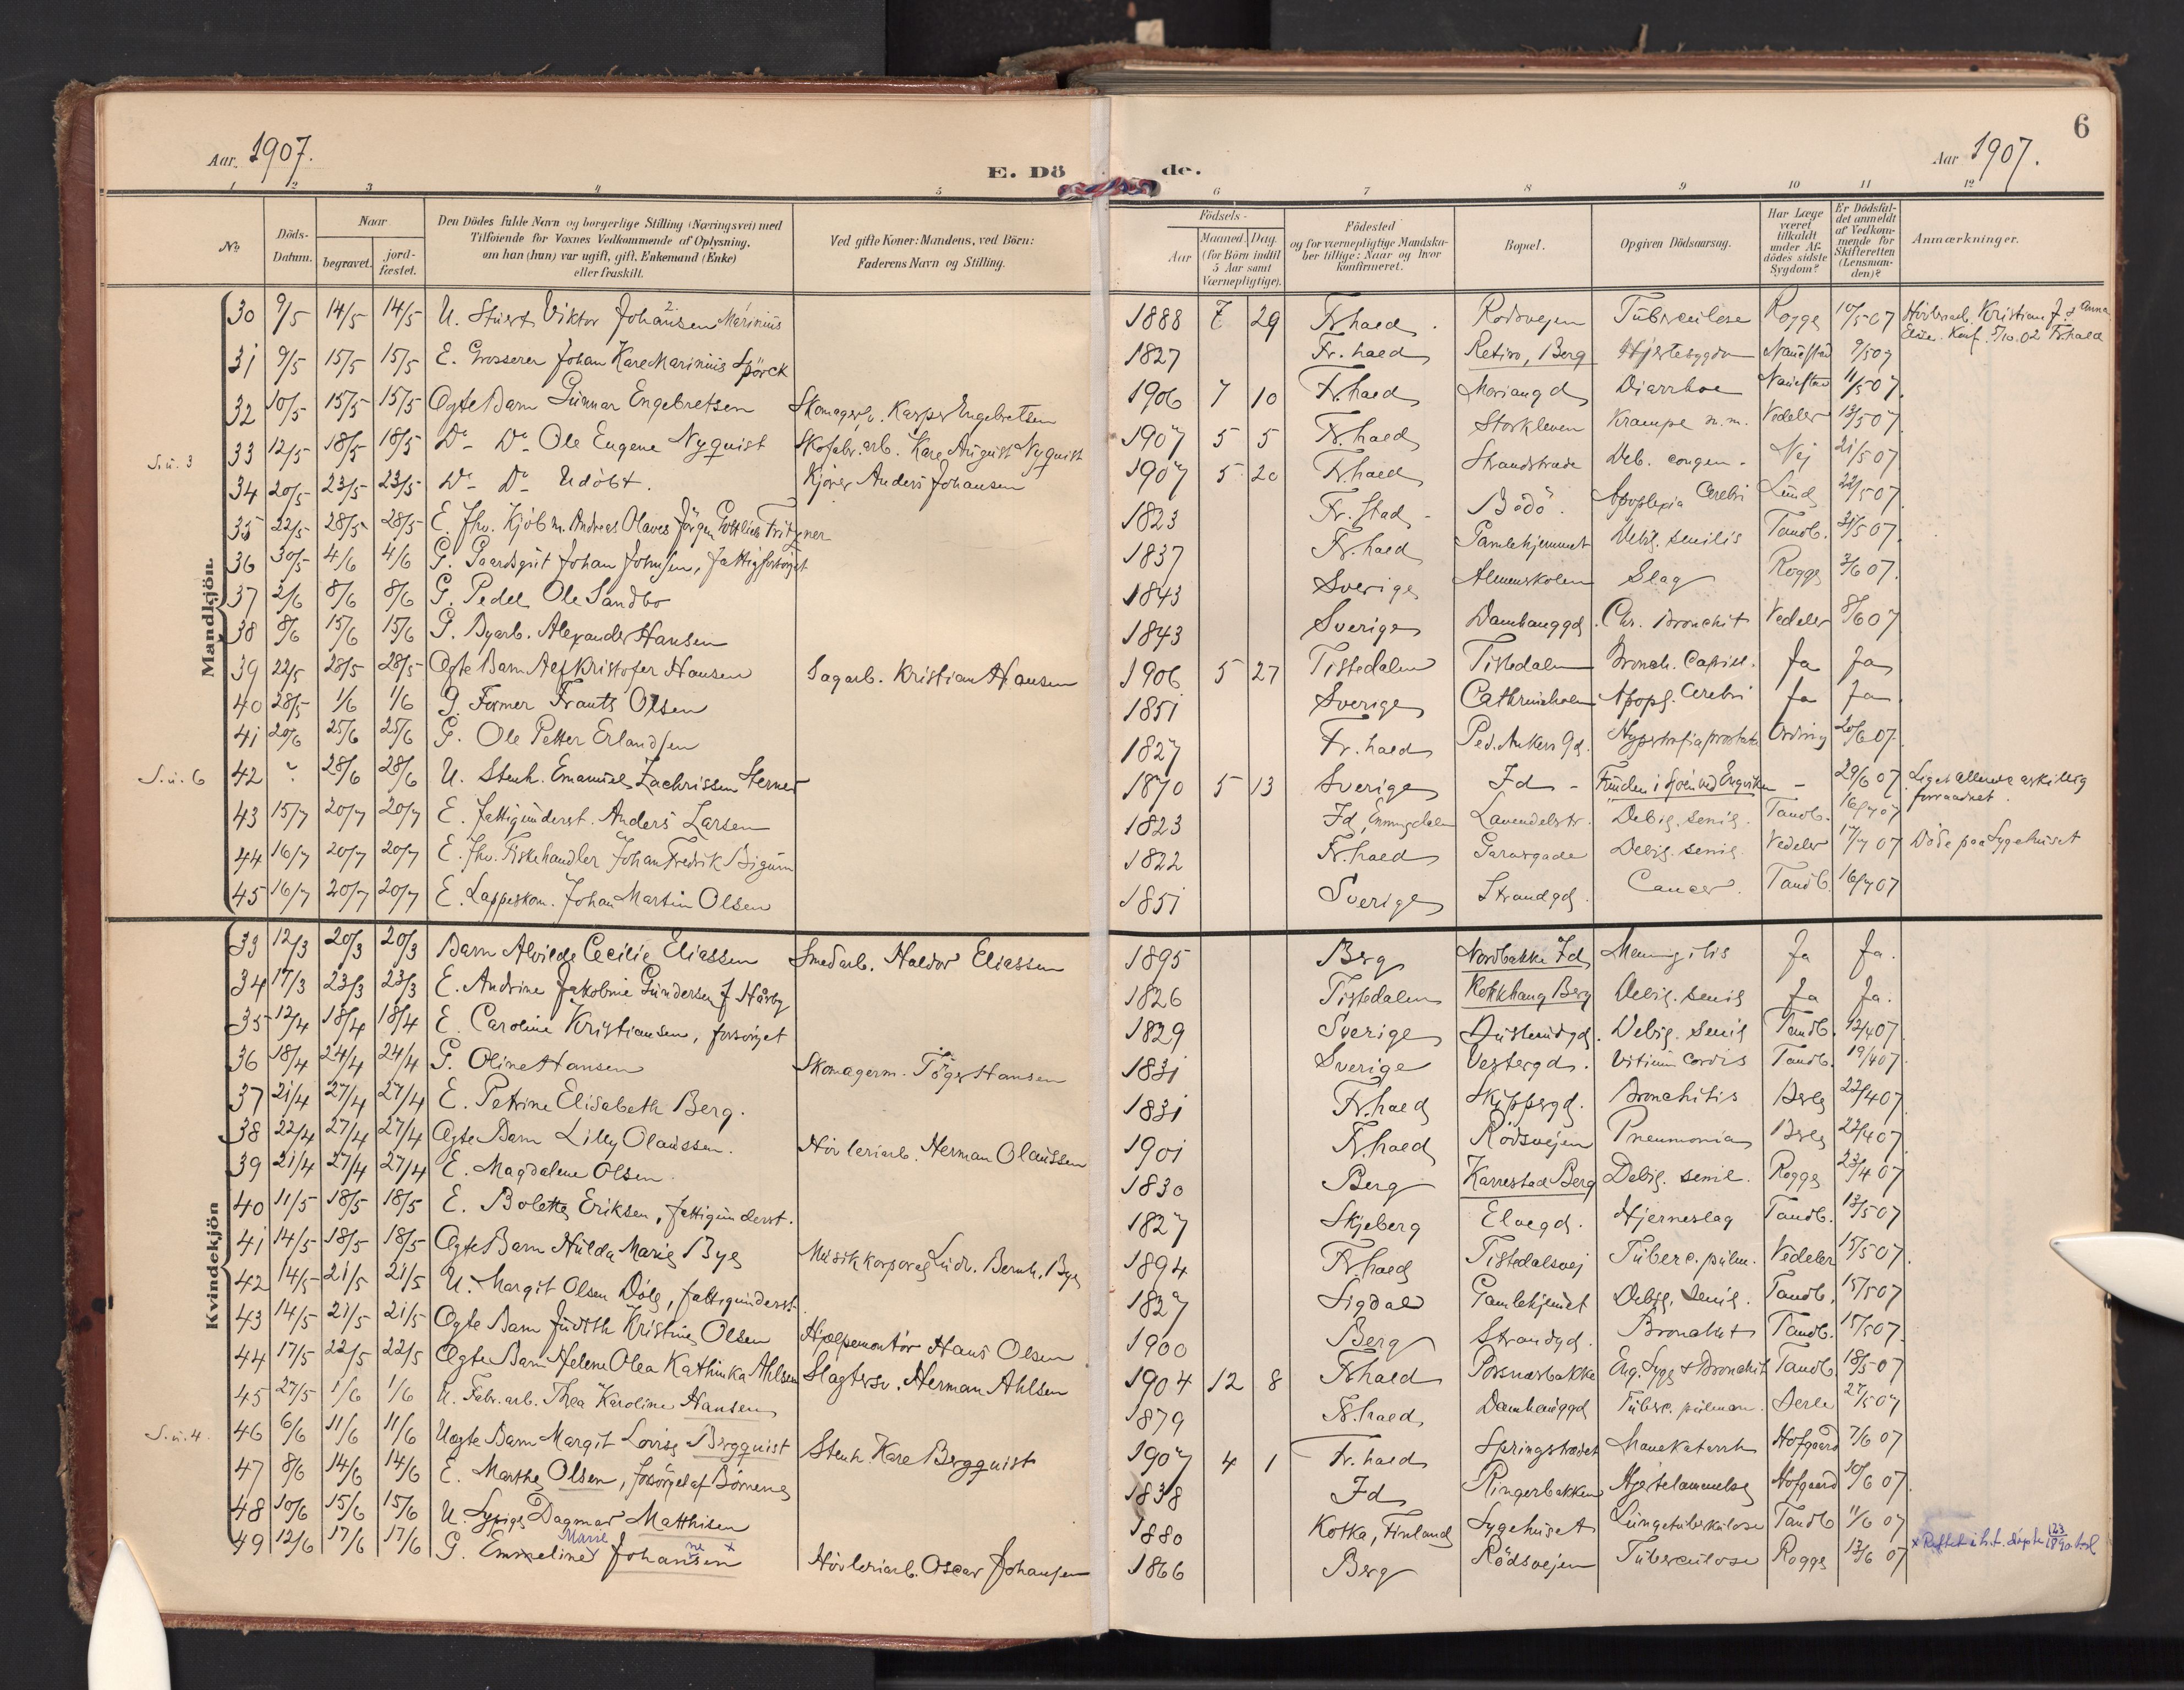 6
Aar. 1907.
E. Dö de.
Aar 1907.
1 2 3 4 5 6 7 8 9 10 11 12
No
Döds-Datum.
Naar
begravet.
jord-fæstet.
Den Dödes fulde Navn og borgerlige Stilling (Næringsvei) med
Tilföiende for Voxnes Vedkommende af Oplysning,
om han (hun) var ugift, gift, Enkemand (Enke)
eller fraskilt.
Ved gifte Koner: Mandens, ved Börn:
Faderens Navn og Stilling.
Födsels-
Aar
Maaned. Dag.
(for Börn indtil
5 Aar samt
Værnepligtige).
Födested
og for værnepligtige Mandska-
ber tillige: Naar og hvor
konfirmeret.
Bopæl.
Opgiven Dödsaarsag.
Har Læge
været
tilkaldt
under Af-
dödes sidste
Sygdom?
Er Dödsfal-
det anmeldt
af Vedkom-
mende for
Skifteretten
(Lensman-
den)?
Anmærkninger.
Mandkjön.
30 9/5 14/5 14/5 U. Viktor Johansen Marinius 1888 7 29 Fr.hald Rødsvejen Tuberculose Rogge 10/5 07 Høvleriarb. Kristian J. & Anna
Elise. Konf. 5/10.02 Fr.hald
31 9/5 15/5 15/5 E. Grosserer Johan Karl Marinius Spörck 1827 Fr.hald Retiro, Berg Hjertesygdom Nauestad 9/5 07
32 10/5 15/5 15/5 Ægte Barn Gunnar Engebretsen Skomagersv. Kasper Engebretsen 1906 7 10 Fr.hald Diarrhoe Nauestad 11/5 07
S.u. 3 33 12/5 18/5 18/5 Do - Do Ole Eugene Nyquist Skofabr.arb. Karl August Nyquist 1907 5 5 Fr.hald Storkleven Krampe m.m. Vedeler 13/5 07
34 20/5 23/5 23/5 Do - Do Udöbt. Kjører Anders Johansen 1907 5 20 Fr.hald Strandstræde Deb. congen. Nej 21/5 07
35 22/5 28/5 28/5 E. Fhv. Kjöbm. Andreas Olaves Jörgen Gottlieb Fritzner 1823 Fr.stad Bödö. Apoplexia Cerebri Lund 22/5 07
36 30/5 4/6 4/6 G. Gaardsgut Johan Johnsen, fattigforsörget 1837 Fr.hald Gamlehjemmet Debil. senilis Tandb. 31/5 07
37 2/6 8/6 8/6 G. Pedel Ole Sandbo 1843 Sverige Almenskolen Slag Rogge 3/6 07
38 8/6 15/6 15/6 G. Byarb. Alexander Hansen 1843 Sverige Damhauggd. Chr. Bronchit Vedeler 8/6 07
39 22/5 28/5 28/5 Ægte Barn Alf Kristofer Hansen Sagarb. Kristian Hansen 1906 5 27 Tistedalen Tistedalen Bronch. Capill. Ja Ja
40 28/5 1/6 1/6 G. Former Frants Olsen 1851 Sverige Cathrineholm Apopl. Cerebri Ja Ja
41 20/6 25/6 25/6 G. Ole Petter Erlandsen 1827 Fr.hald Ped. Ankers Gd. Hypertrofia prostata Ording 20/6 07
S.u. 6 42 ? 28/6 28/6 U. Stenh. Emanuel Zachrissen Sterner 1870 5 13 Sverige Id - Funden i Sjöen ved - 29/6 07 Liget allerede adskillig
forraadnet.
43 15/7 20/7 20/7 E. Fattigunderst. Anders Larsen 1823 Id, Enningdalen Lavendelstr. Debil. senil. Tandb. 16/7 07
44 16/7 20/7 20/7 E. Fhv. Fiskehandler Johan Fredrik Bigum 1822 Fr.hald Garvergade Debil. senil. Vedeler 17/7 07 Döde paa Sygehuset
45 16/7 20/7 20/7 E. Lappeskom. Johan Martin Olsen 1851 Sverige Strandgd. Cancer. Tandb. 16/7 07
Kvindekjön
33 12/3 20/3 20/3 Barn Alvilde Cecilie Eliassen Smedarb. Haldor Eliassen 1895 Berg Nordbakke Id Meningitis Ja Ja.
34 17/3 23/3 23/3 E. Andrine Jakobine Gundersen f. Hårby 1826 Tistedalen Kokkhaug Berg Debil. senil Ja Ja.
35 12/4 18/4 18/4 E. Caroline Kristiansen, forsörget 1829 Sverige Debil. senil Tandb. 12/4 07
36 18/4 24/4 24/4 G. Oline Hansen Skomagerm. Töger Hansen 1831 Sverige Vestergd. Vitium cordis Tandb. 19/4 07
37 21/4 27/4 27/4 E. Petrine Elisabeth Berg. 1831 Fr.hald Skippergd. Bronchitis Berle 22/4 07
38 22/4 27/4 27/4 Ægte Barn Lilly Olaussen. Høvleriarb. Herman Olaussen 1901 Fr.hald Rödsvejen Pneumonia Berle 22/4 07
39 21/4 27/4 27/4 E. Magdalene Olsen 1830 Berg Karrestad Berg Debil. senil. Rogge 23/4 07
40 11/5 18/5 18/5 E. Bolette Eriksen, fattigunderst. 1827 Skjeberg Elvegd. Hjerneslag Tandb. 13/5 07
41 14/5 18/5 18/5 Ægte Barn Hulda Marie Bye Musikkorporal Ludv. Bernh. Bye 1894 Fr.hald Tistedalsvej Tuberc. pulm. Vedeler 15/5 07
42 14/5 21/5 21/5 U. Margit Olsen Döle, fattigunderst. 1827 Sigdal Gamlehjemmet Debil. senil. Tandb. 15/5 07
43 14/5 21/5 21/5 Ægte Barn Judith Kristine Olsen Hjælpemontör Hans Olsen 1900 Berg Strandgd. Bronchit Tandb. 15/5 07
44 17/5 22/5 22/5 Ægte Barn Helene Olea Kathinka Ahlsen Slagtersv. Herman Ahlsen 1904 12 8 Fr.hald Porsnæsbakke Eng. Syge & Bronchit Tandb. 18/5 07
45 27/5 1/6 1/6 U. Fabr.arb. Thea Karoline Hansen 1879 Fr.hald Damhauggd Tuberc. pulmon. Berle 27/5 07
S.u. 4. 46 6/6 11/6 11/6 Uægte Barn Margit Lovise Bergquist Stenh. Karl Bergquist 1907 4 1 Fr.hald Springstrædet Mavekatarrh Hofgaard 7/6 07
47 8/6 14/6 14/6 E. Marthe Olsen, forsörget af Börnene 1838 Id Ringerbakken Hjertelammelse Hofgaard 10/6 07
48 10/6 15/6 15/6 U. Sypige Dagmar Matthisen 1880 Kotka, Finland Sygehuset Lungetuberkulose Tandb 11/6 07
49 12/6 17/6 17/6 G. Emmeline Marie Johansen ne x Høvleriarb. Oscar Johansen 1866 Berg Rødsvejen Tuberculose Rogge 13/6 07 x Rettet i h.t.